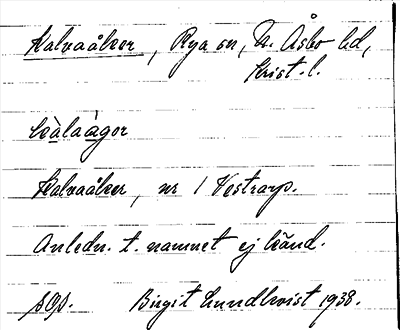 Kalvaåker, Rya sn, N. Åsbo hd,
Krist. l.
kàlaàgor
Kalvaåker, nr 1 Vestrarp.
Anledn. t. namnet ej känd.
sgs. Birgit Lundkvist 1938.